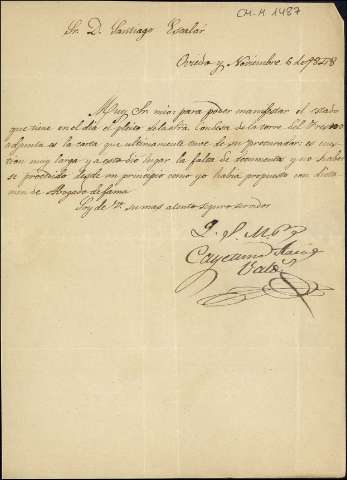 CM-M 1487
Sr. D. Santiago Escalár
Oviedo y Noviembre 6 de 1848
Muy Sr. mio: para poder manifestar el estado
que tiene en el dia el pleito de la Sra. Condesa de la torre del Fresno
adjunta es la carta que ultimamente tuve de su procurador: es cues
tion muy larga y a esto dio lugar la falta de documentos y no haber
se procedido desde un principio como yo habia propuesto con dicta
men de Abogado de fama
Soy de V. su mas atento seguro servidor
Q. S. M. B.
Cayetano
Valdes